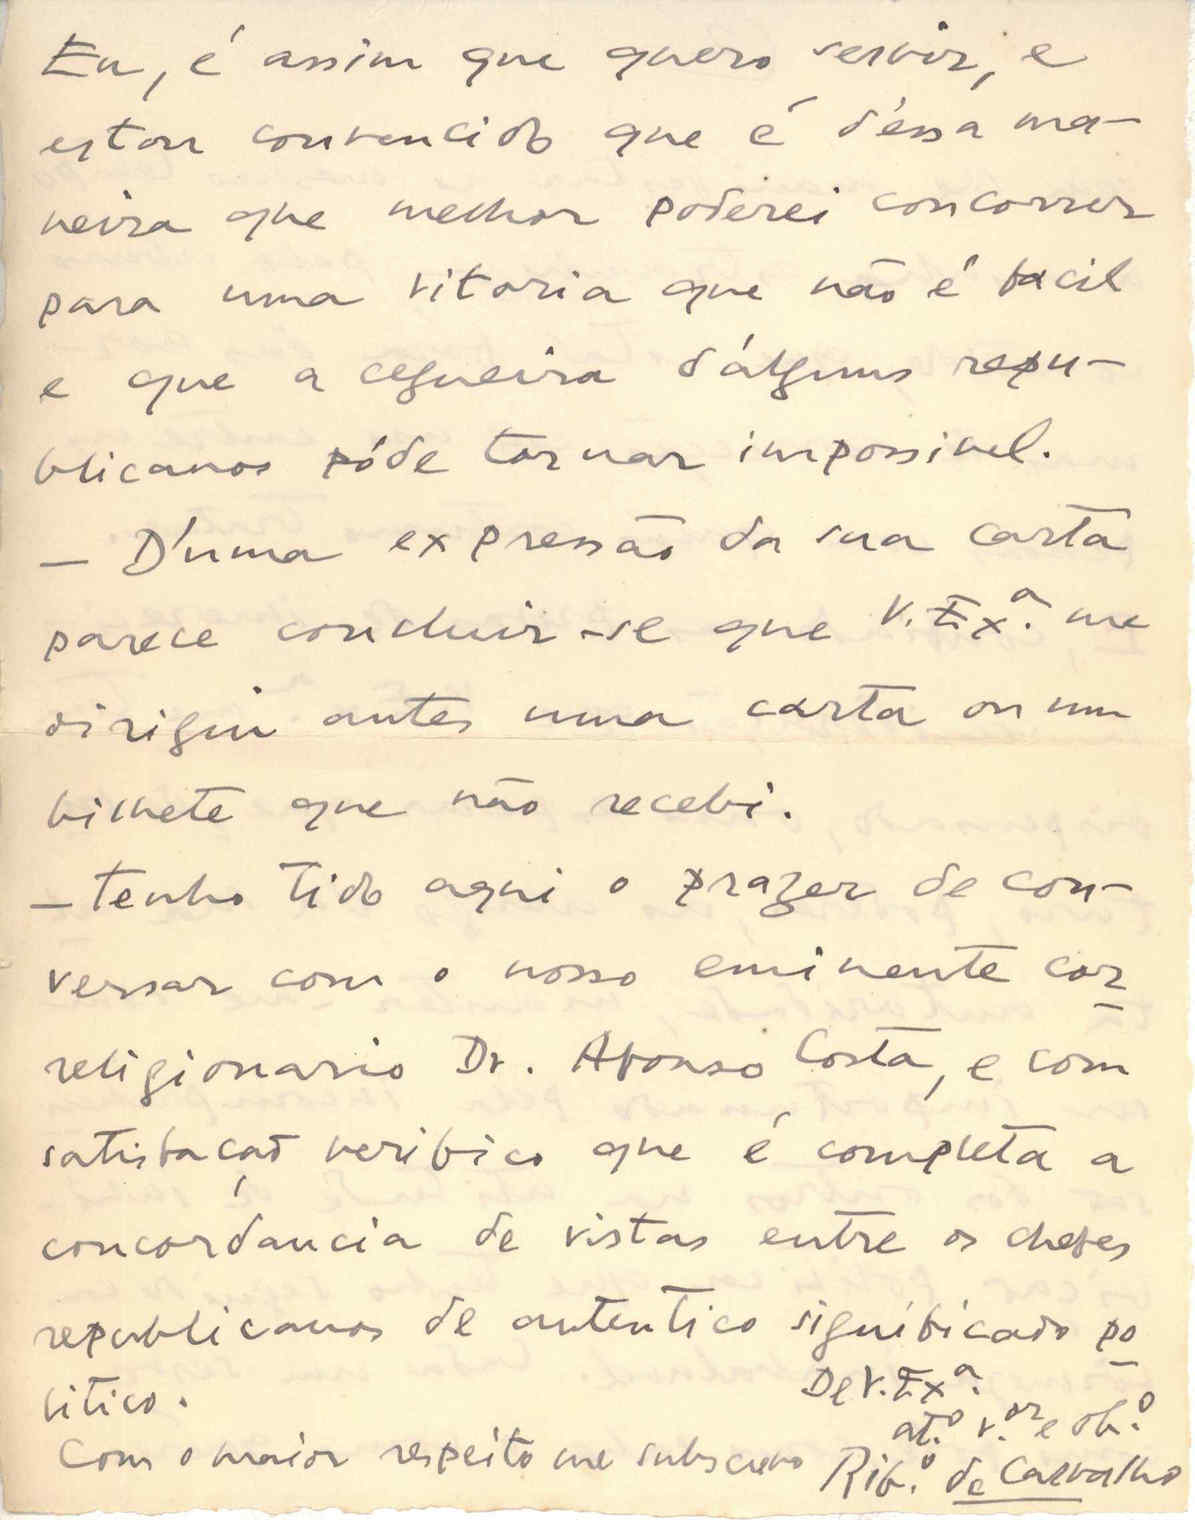 Eu, é assim que quero servir, e
estou convencido que é d'éssa ma-
neira que melhor poderei concorrer
para uma vitoria que não é facil
e que a cegueira d'álguns repu-
blicanos póde tornar impossivel.
— D'uma expressão da sua carta
parece concluir-se que V. Exª. me
dirigiu antes uma carta ou um
bilhete que não recebi.
— Tenho tido aqui o prazer de con-
versar com o nosso eminente cor-
religionario Dr. Afonso Costa, e com
satisfação verifico que é completa a
concordancia de vistas entre os chefes
republicanos de autentico significado po-
litico.
Com o maior respeito me subscrevo
De V. Exª.
at.º v.ºr e ob.º
Rib.º de Carvalho